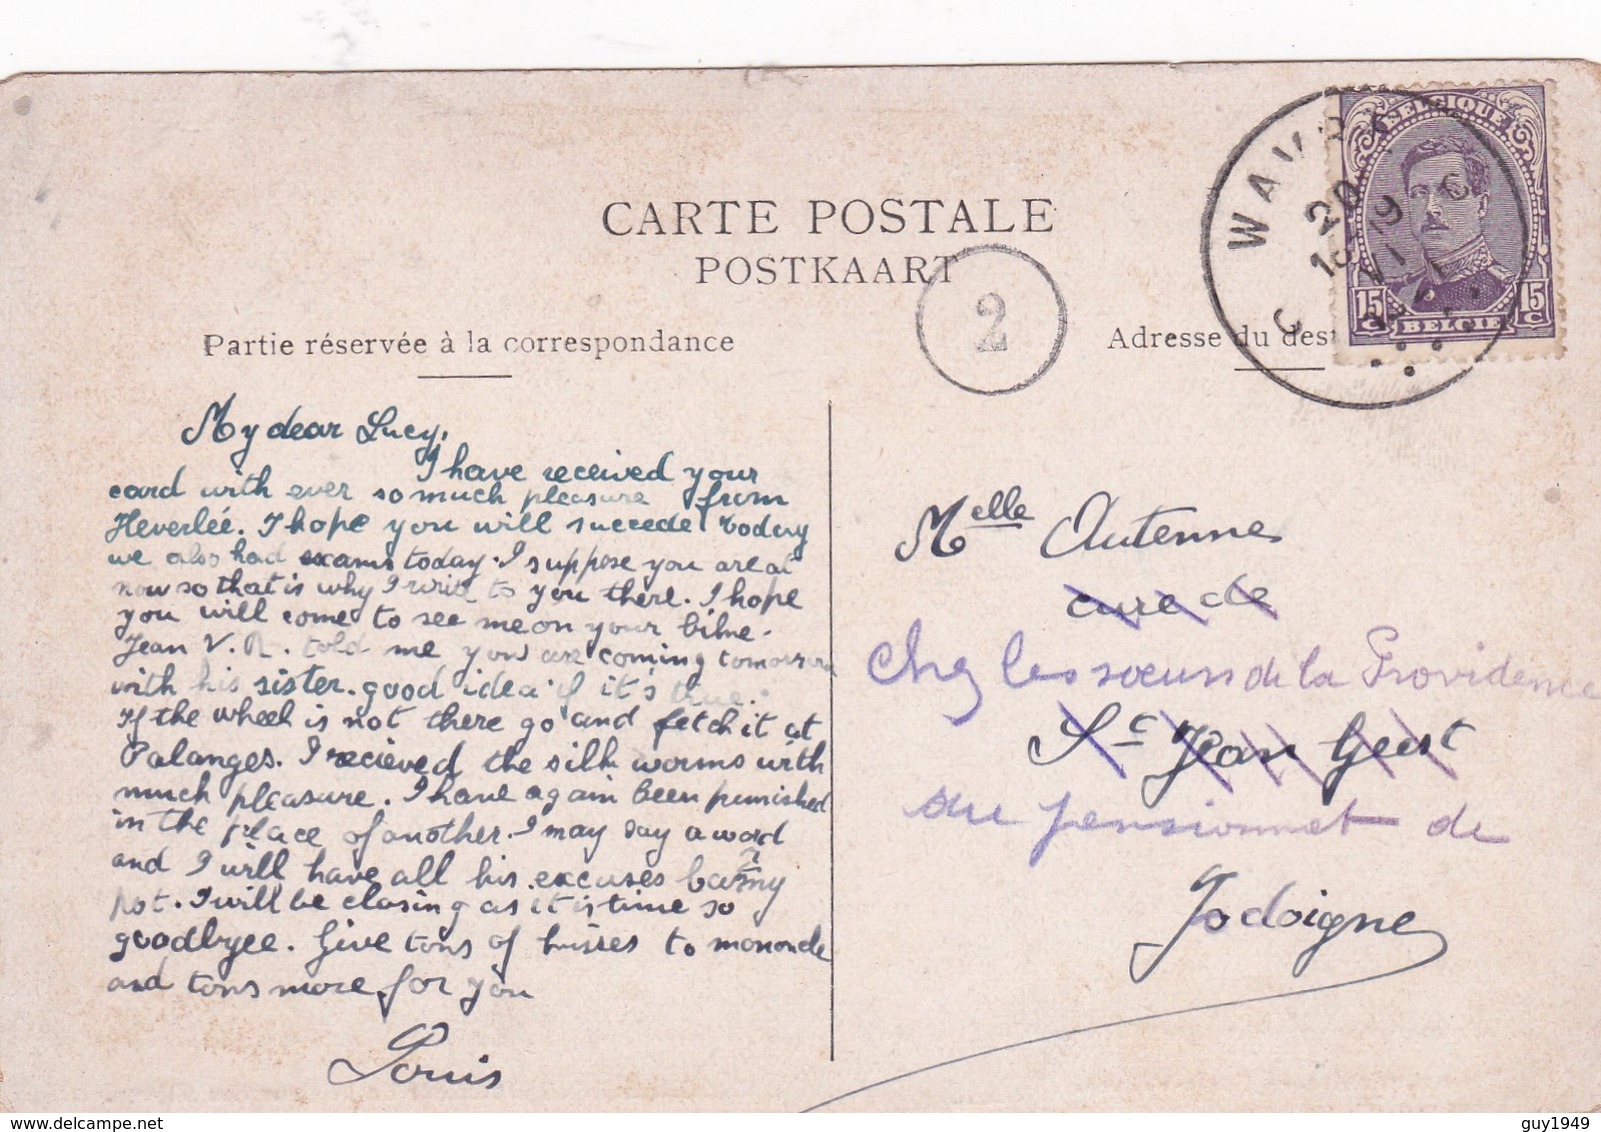 CARTE POSTALE
POSTKAART
2
Partie réservée à la correspondance
Adresse du dest
BELGIQUE
15 C
15 C
BELGIE
WAVR
20
18-19
VI
My dear Lucy,
I have received your
card with ever so much pleasure from
Heverlée. I hope you will succede today
we also had exams today. I suppose you are at
now so that is why I write to you there. I hope
you will come to see me on your
Jean V. R. told me you are coming tomorrow
with his sister. good idea if it's true.
If the wheel is not there go and fetch it at
Palanges. I recieved the silk worms with
much pleasure. I have again been punished
in the place of another. I may say a word
and I will have all his excuses
not. I will be closing as it is time so
goodbyee. Give tons of kisses to
and tons more for you
Louis
Melle Autenne
cure de
chez les soeurs de la Providence
St Jean Geest
au pensionnat de
Jodoigne
guy1949